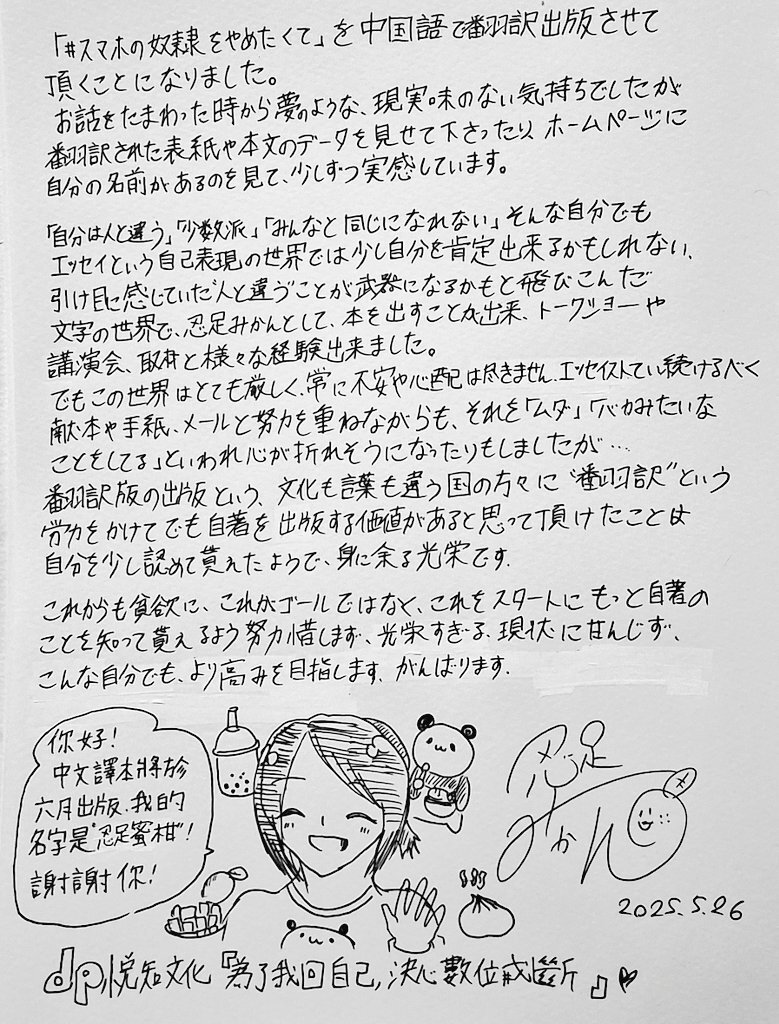 「#スマホの奴隷をやめたくて」を中国語で翻訳出版させて
頂くことになりました。
お話をたまわった時から夢のような、現実味のない気持ちでしたが
翻訳された表紙や本文のデータを見せて下さったり、ホームページに
自分の名前があるのを見て、少しずつ実感しています。
「自分は人と違う」「少数派」「みんなと同じになれない」そんな自分でも
エッセイという自己表現の世界では少し自分を肯定出来るかもしれない、
引け目に感じていた"人と違うことが武器になるかもと飛びこんだ
文字の世界で、忍足みかんとして、本を出すことが出来、トークショーや
講演会、取材と様々な経験出来ました。
でもこの世界はとても厳しく、常に不安や心配は尽きません、エッセイストでい続けるべく
献本や手紙、メールと努力を重ねながらも、それを「ムダ」「バカみたいな
ことをしてる」といわれ心が折れそうになったりもしましたが…
翻訳版の出版という、文化も言葉も違う国の方々に"翻訳"という
労力をかけてでも自著を出版する価値があると思って頂けたことは
自分を少し認めて貰えたようで、身に余る光栄です。
これからも貪欲に、これがゴールではなく、これをスタートにもっと自著の
ことを知って貰えるよう努力惜します、光栄すぎる現状に甘んじず、
こんな自分でも、より高みを目指します、がんばります。
你好!
中文譯本將於
六月出版、我的
名字是"忍足蜜柑"!
謝謝你!
忍足
みかん
2025.5.26
dp,悦知文化『為了我回自己,決心數位戒斷』♥